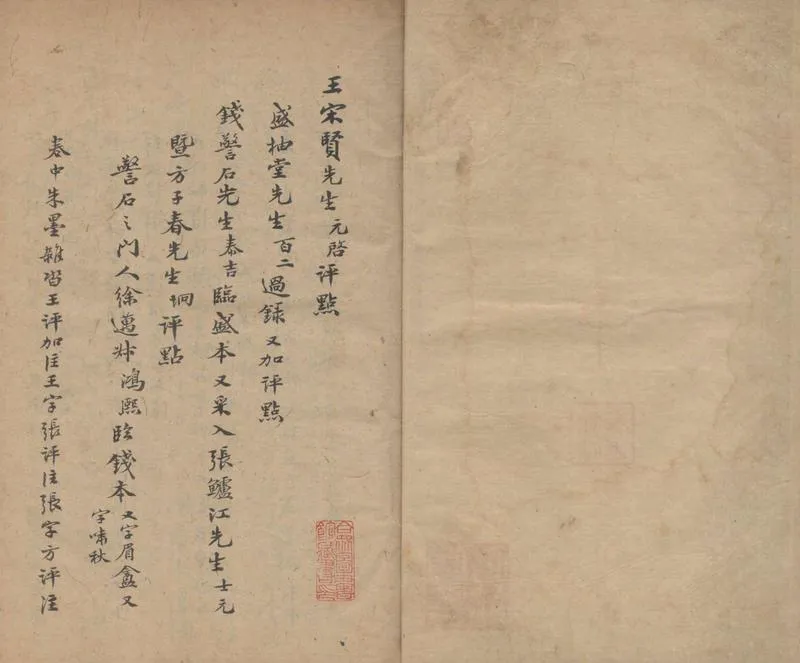 王宋賢先生元啓评點
盛柚堂先生百二過録又加评點
錢警石先生泰吉臨盛本又采入張鱸江先生士元
暨方子春先生坰评點
警石之門人徐邁叔鴻熙臨錢本又字眉盦又
字嘯秋
卷中朱墨雜沓王评加注王字張评注張字方评注